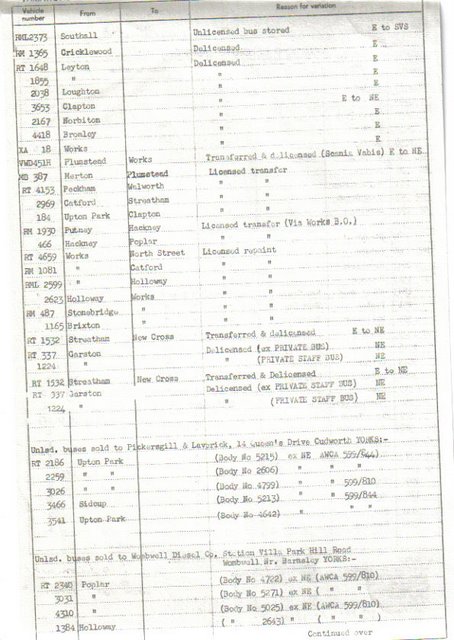 Vehicle number From To Reason for variation
RML2373 Southall Unlicensed bus stored E to SVS
RM 1365 Cricklewood Delicensed E
RT 1648 Leyton Delicensed E
1855 " " E
2038 Loughton " E
3653 Clapton " E to NE
2167 Norbiton " E
4418 Bromley " E
XA 18 Works " E
VWD451H Plumstead Works Transferred & delicensed (Scenic Vabis) E to NE
MB 387 Merton Plumstead Licensed transfer
RT 4153 Peckham Walworth " "
2969 Catford Streatham " "
184 Upton Park Clapton " "
RM 1930 Putney Hackney Licensed transfer (Via Works B.O.)
466 Hackney Poplar " "
RT 4659 Works North Street Licensed repaint
RM 1081 " Catford " "
RML 2599 " Holloway " "
2623 Holloway Works " "
RM 487 Stonebridge " " "
1165 Brixton " " "
RT 1532 Streatham New Cross Transferred & delicensed E to NE
RT 337 Garston Delicensed (ex PRIVATE BUS) NE
1224 " " (PRIVATE STAFF BUS) NE
RT 1532 Streatham New Cross Transferred & Delicensed E to NE
RT 337 Garston Delicensed (ex PRIVATE STAFF BUS) NE
1224 " " (PRIVATE STAFF BUS) NE
Unlsd. buses sold to Pickersgill & Laverick, 14 Queen's Drive Cudworth YORKS:-
RT 2186 Upton Park (Body No 5215) ex NE (AWCA 599/844)
2259 " " (Body No 2606) " " "
3026 " " (Body No 4799) " " 599/810
3466 Sidcup (Body No 5213) " " 599/844
3541 Upton Park (Body No 4642) " " "
Unlsd. buses sold to Wombwell Diesel Co. Station Villa Park Hill Road
Wombwell Nr. Barnsley YORKS:-
RT 2340 Poplar (Body No 4722) ex NE (AWCA 599/810)
3031 " (Body No 5271) ex NE ( " " )
4310 " (Body No 5025) ex NE (AWCA 599/810)
1384 Holloway ( " 2643) " ( " " )
Continued over